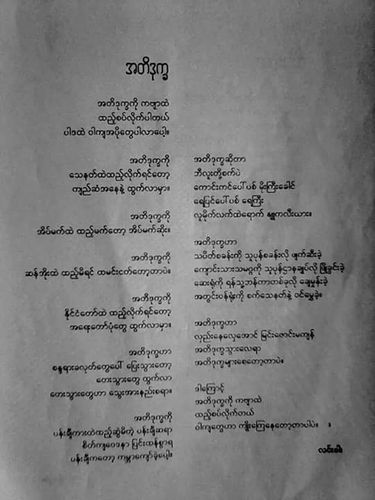 အတိဒုက္ခ
အတိဒုက္ခကို ကဗျာထဲ
ထည့်စပ်လိုက်ပါတယ်
ပါဒထဲ ဝါကျအပိုတွေပါလာပေါ့။
အတိဒုက္ခကို
သေနတ်ထဲထည့်လိုက်ရင်တော့
ကျည်ဆံအနေနဲ့ ထွက်လာမှာ။
အတိဒုက္ခကို
အိပ်မက်ထဲ ထည့်မက်တော့ အိပ်မက်ဆိုး။
အတိဒုက္ခကို
ဆန်အိုးထဲ ထည့်မိရင် ထမင်းငတ်တော့တာပဲ။
အတိဒုက္ခကို
နိုင်ငံတော်ထဲ ထည့်လိုက်ရင်တော့
အရေးတော်ပုံတွေ ထွက်လာမှာ။
အတိဒုက္ခဟာ
စန္ဒရားခလုတ်တွေပေါ် ပြေးသွားတော့
တေးသွားတွေ ထွက်လာ
တေးသွားတွေဟာ သွေးအားနည်းစရာ။
အတိဒုက္ခကို
ပန်းချီကားထဲထည့်ဆွဲမိတဲ့ ပန်းချီဆရာ
စိတ်ကျဝေဒနာ ပြင်းထန်ရှာရ
ပန်းချီကတော့ ကမ္ဘာကျော်ခဲ့ပေါ့။
အတိဒုက္ခဆိုတာ
ဘီလူးတို့စက်ပဲ
ကောင်းကင်ပေါ်ပစ် မိုးကြီးခေါင်
ရေပြင်ပေါ်ပစ် ရေကြီး
လူမိုက်လက်ထဲရောက်
အတိဒုက္ခဟာ
သပိတ်စခန်းကို သူပုန်စခန်းလို ဖျက်ဆီးခဲ့
ကျောင်းသားသမဂ္ဂကို သူပုန်ဌာနချုပ်လို ဖြိုခွင်းခဲ့
ဆေးရုံကို ရန်သူ့ဘန်ကာတစ်ခုလို ချေမှုန်းခဲ့
အတွင်းဝန်ရုံးကို စက်သေနတ်နဲ့ ဝင်မွှေခဲ့။
အတိဒုက္ခဟာ
လှည်းနေလှေအောင်း မြင်းဇောင်းမကျန်
အတိဒုက္ခသွားလေရာ
အတိဒုက္ခများစေတော့တာပဲ။
ဒါကြောင့်
အတိဒုက္ခကို ကဗျာထဲ
ထည့်စပ်လိုက်တယ်
ဝါကျတွေဟာ ကျိုးကြေနေတော့တာပါပဲ။
လင်းခါး